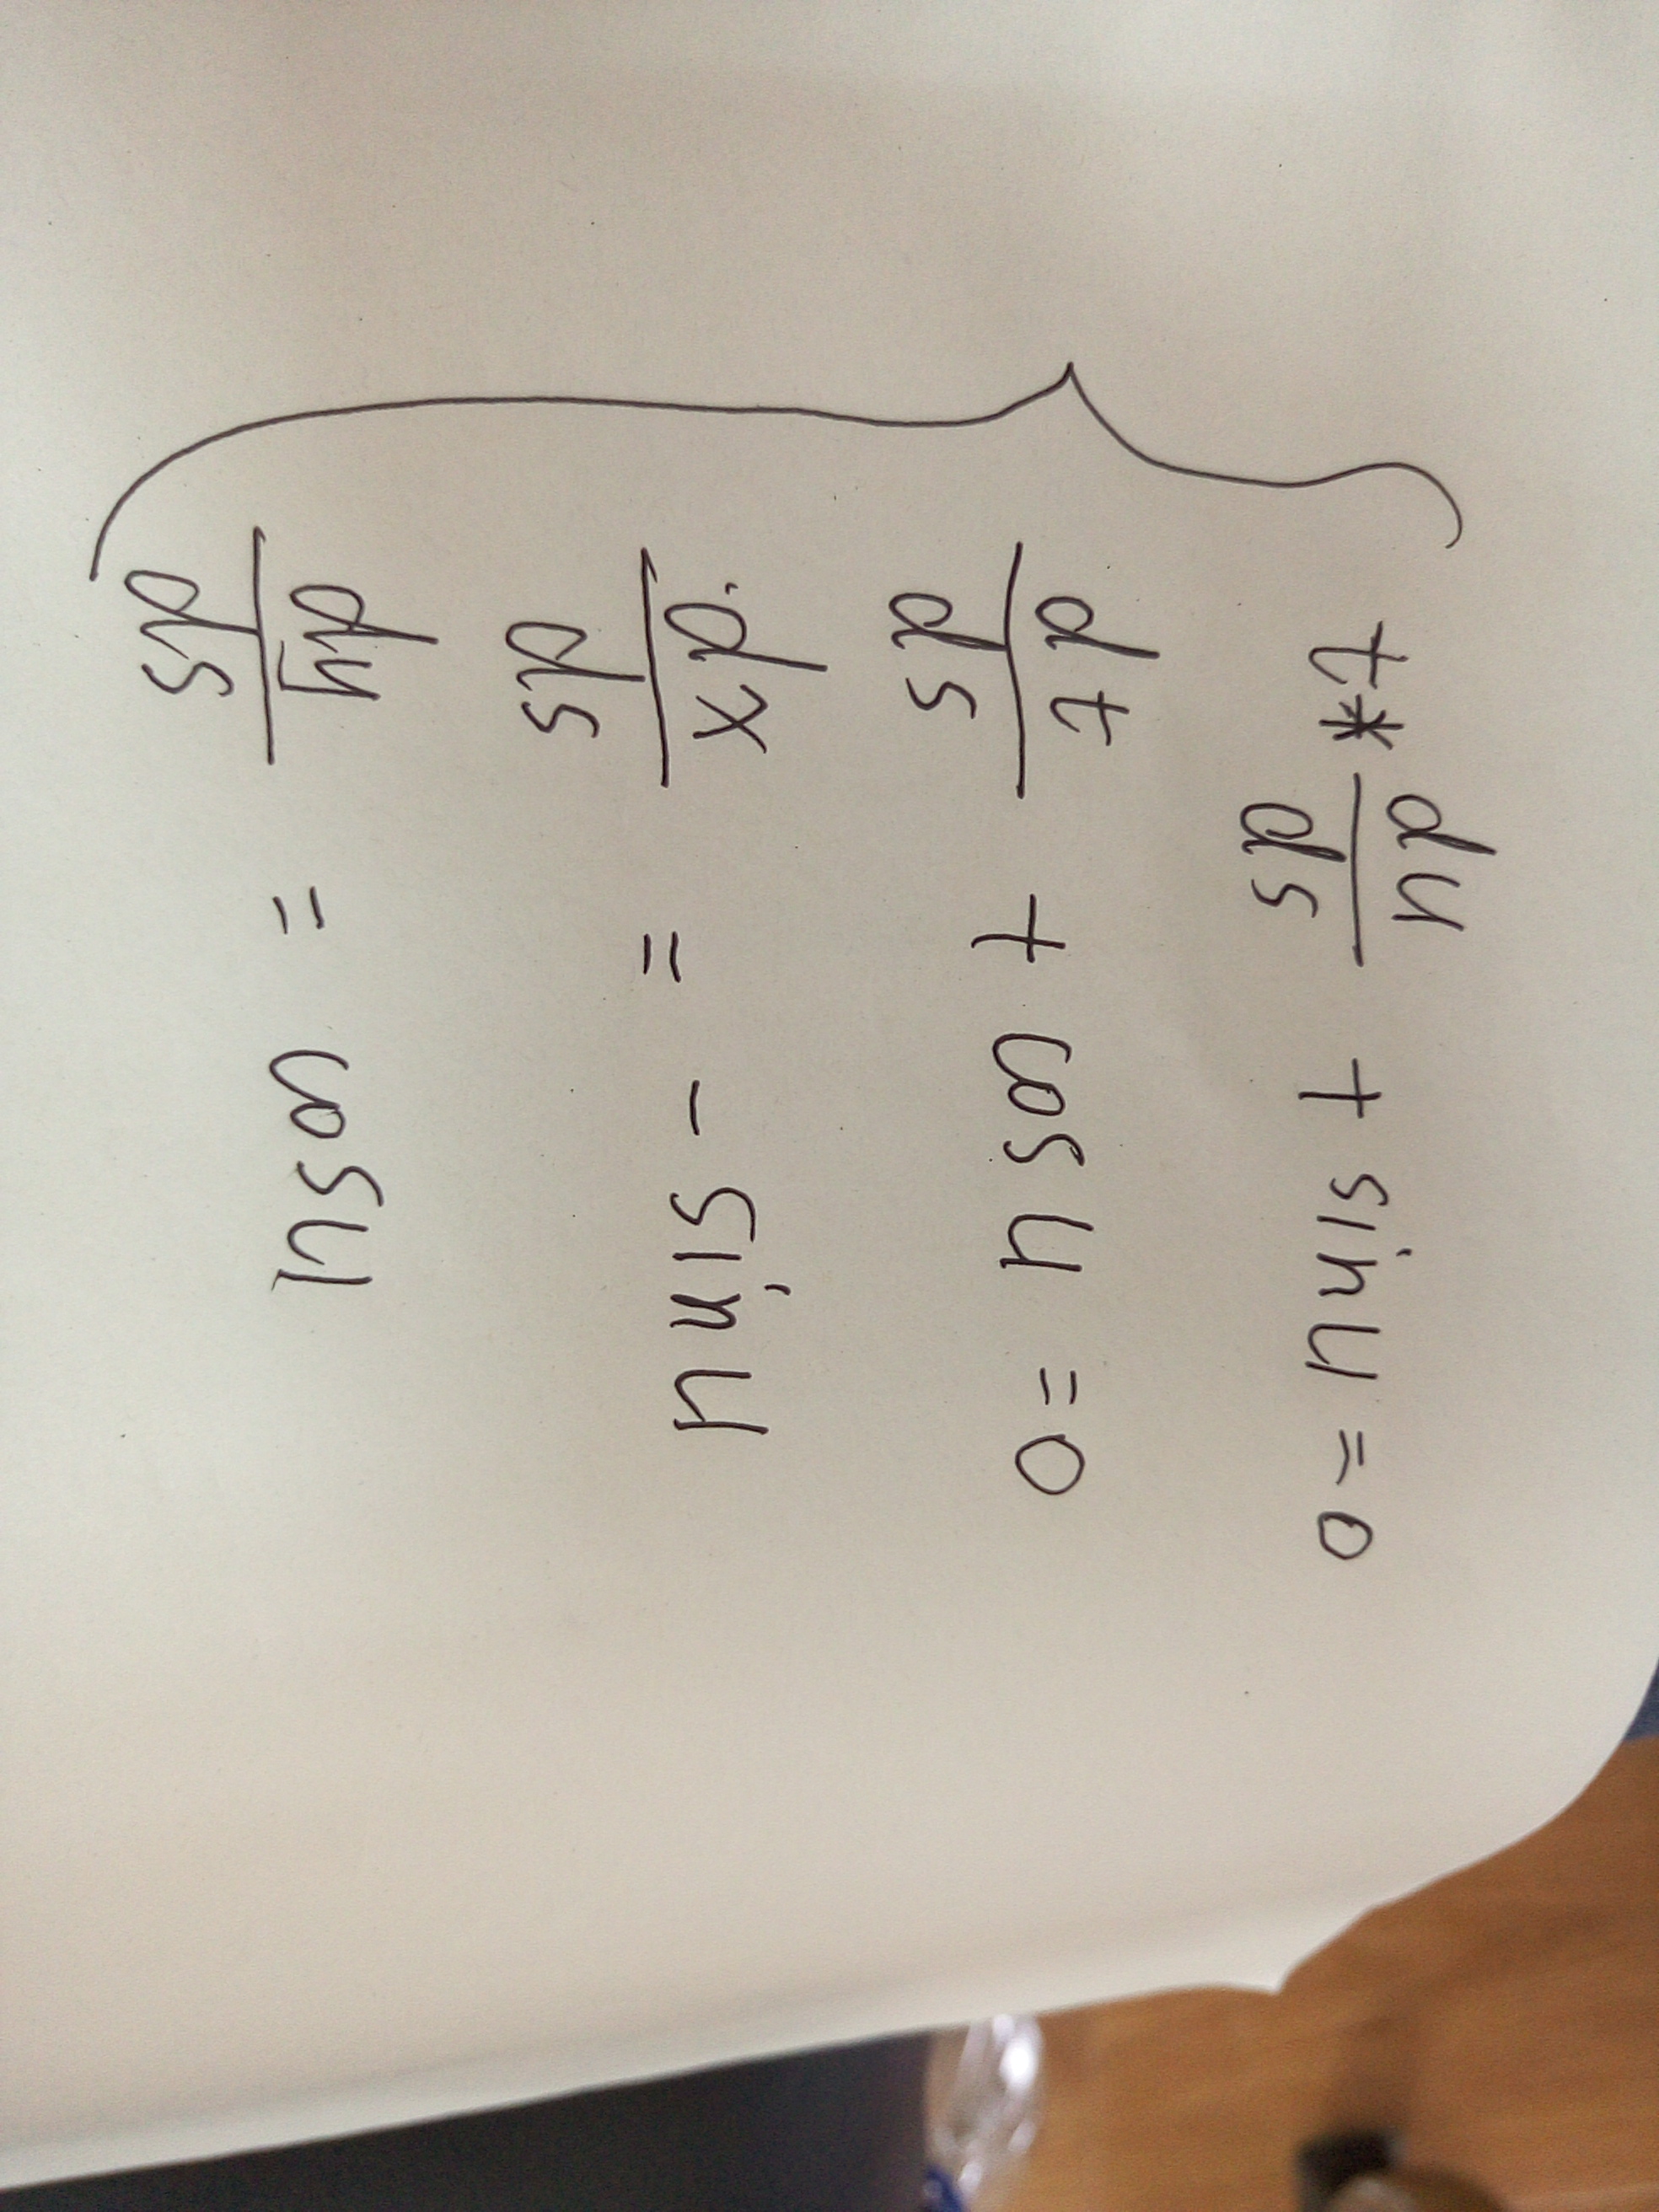 t * du/ds + sin u = 0
dt/ds + cos u = 0
dx/ds = - sin u
dy/ds = cos u